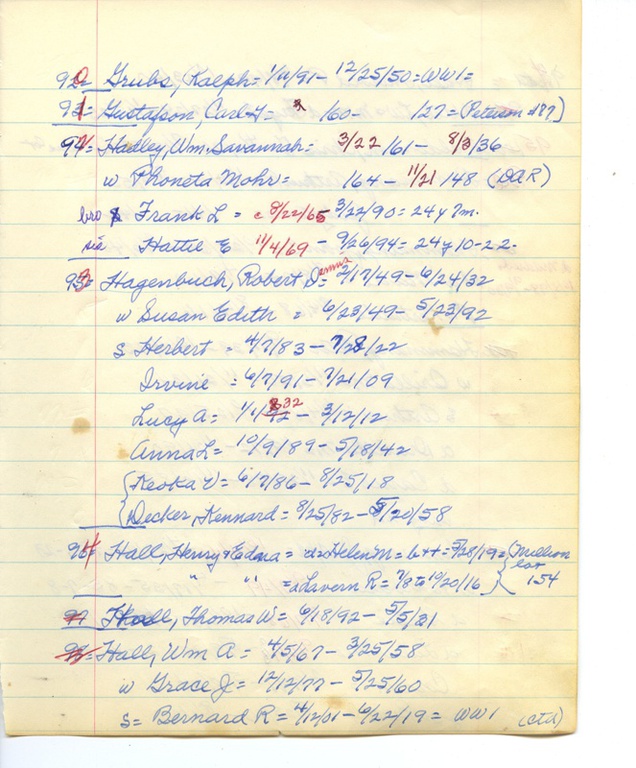 920= Grubs, Ralph= 1/11/91- 12/25/50= WW1=
931= Gustafson, Carl= /60- /27= (Peterson #187)
94= Hadley, Wm. Savannah= 3/22/61- 8/3/36
w Phoneta Mohr= /64- 11/21/48 (DAR)
bro Frank L= c 8/22/65 3/22/90= 24y 7m.
sis Hattie E 11/4/69 - 9/26/94= 24y 10-22-
93= Hagenbuch, Robert S= 2/17/49- 6/24/32
w Susan Edith = 6/23/49- 5/23/92
s Herbert = 4/7/83- 7/28/22
Irvine = 6/7/91- 7/21/09
Lucy A= 1/1/ 82 - 3/12/12
Anna L= 10/9/89- 5/18/42
Keoka V= 6/7/86- 8/25/18
Decker, Kennard= 8/25/82- 5/20/58
Hall, Henry & Edna= d= Helen M= b++= 5/28/19= (Million
" " = d Lavern R= 7/8 to 10/20/16 lot 154
97= Hall, Thomas W= 6/18/92- 5/5/31
98= Hall, Wm A= 4/5/67- 3/25/58
w Grace J= 12/12/77- 5/25/60
s= Bernard R= 4/12/01- 6/22/19= WW1 (ctd)